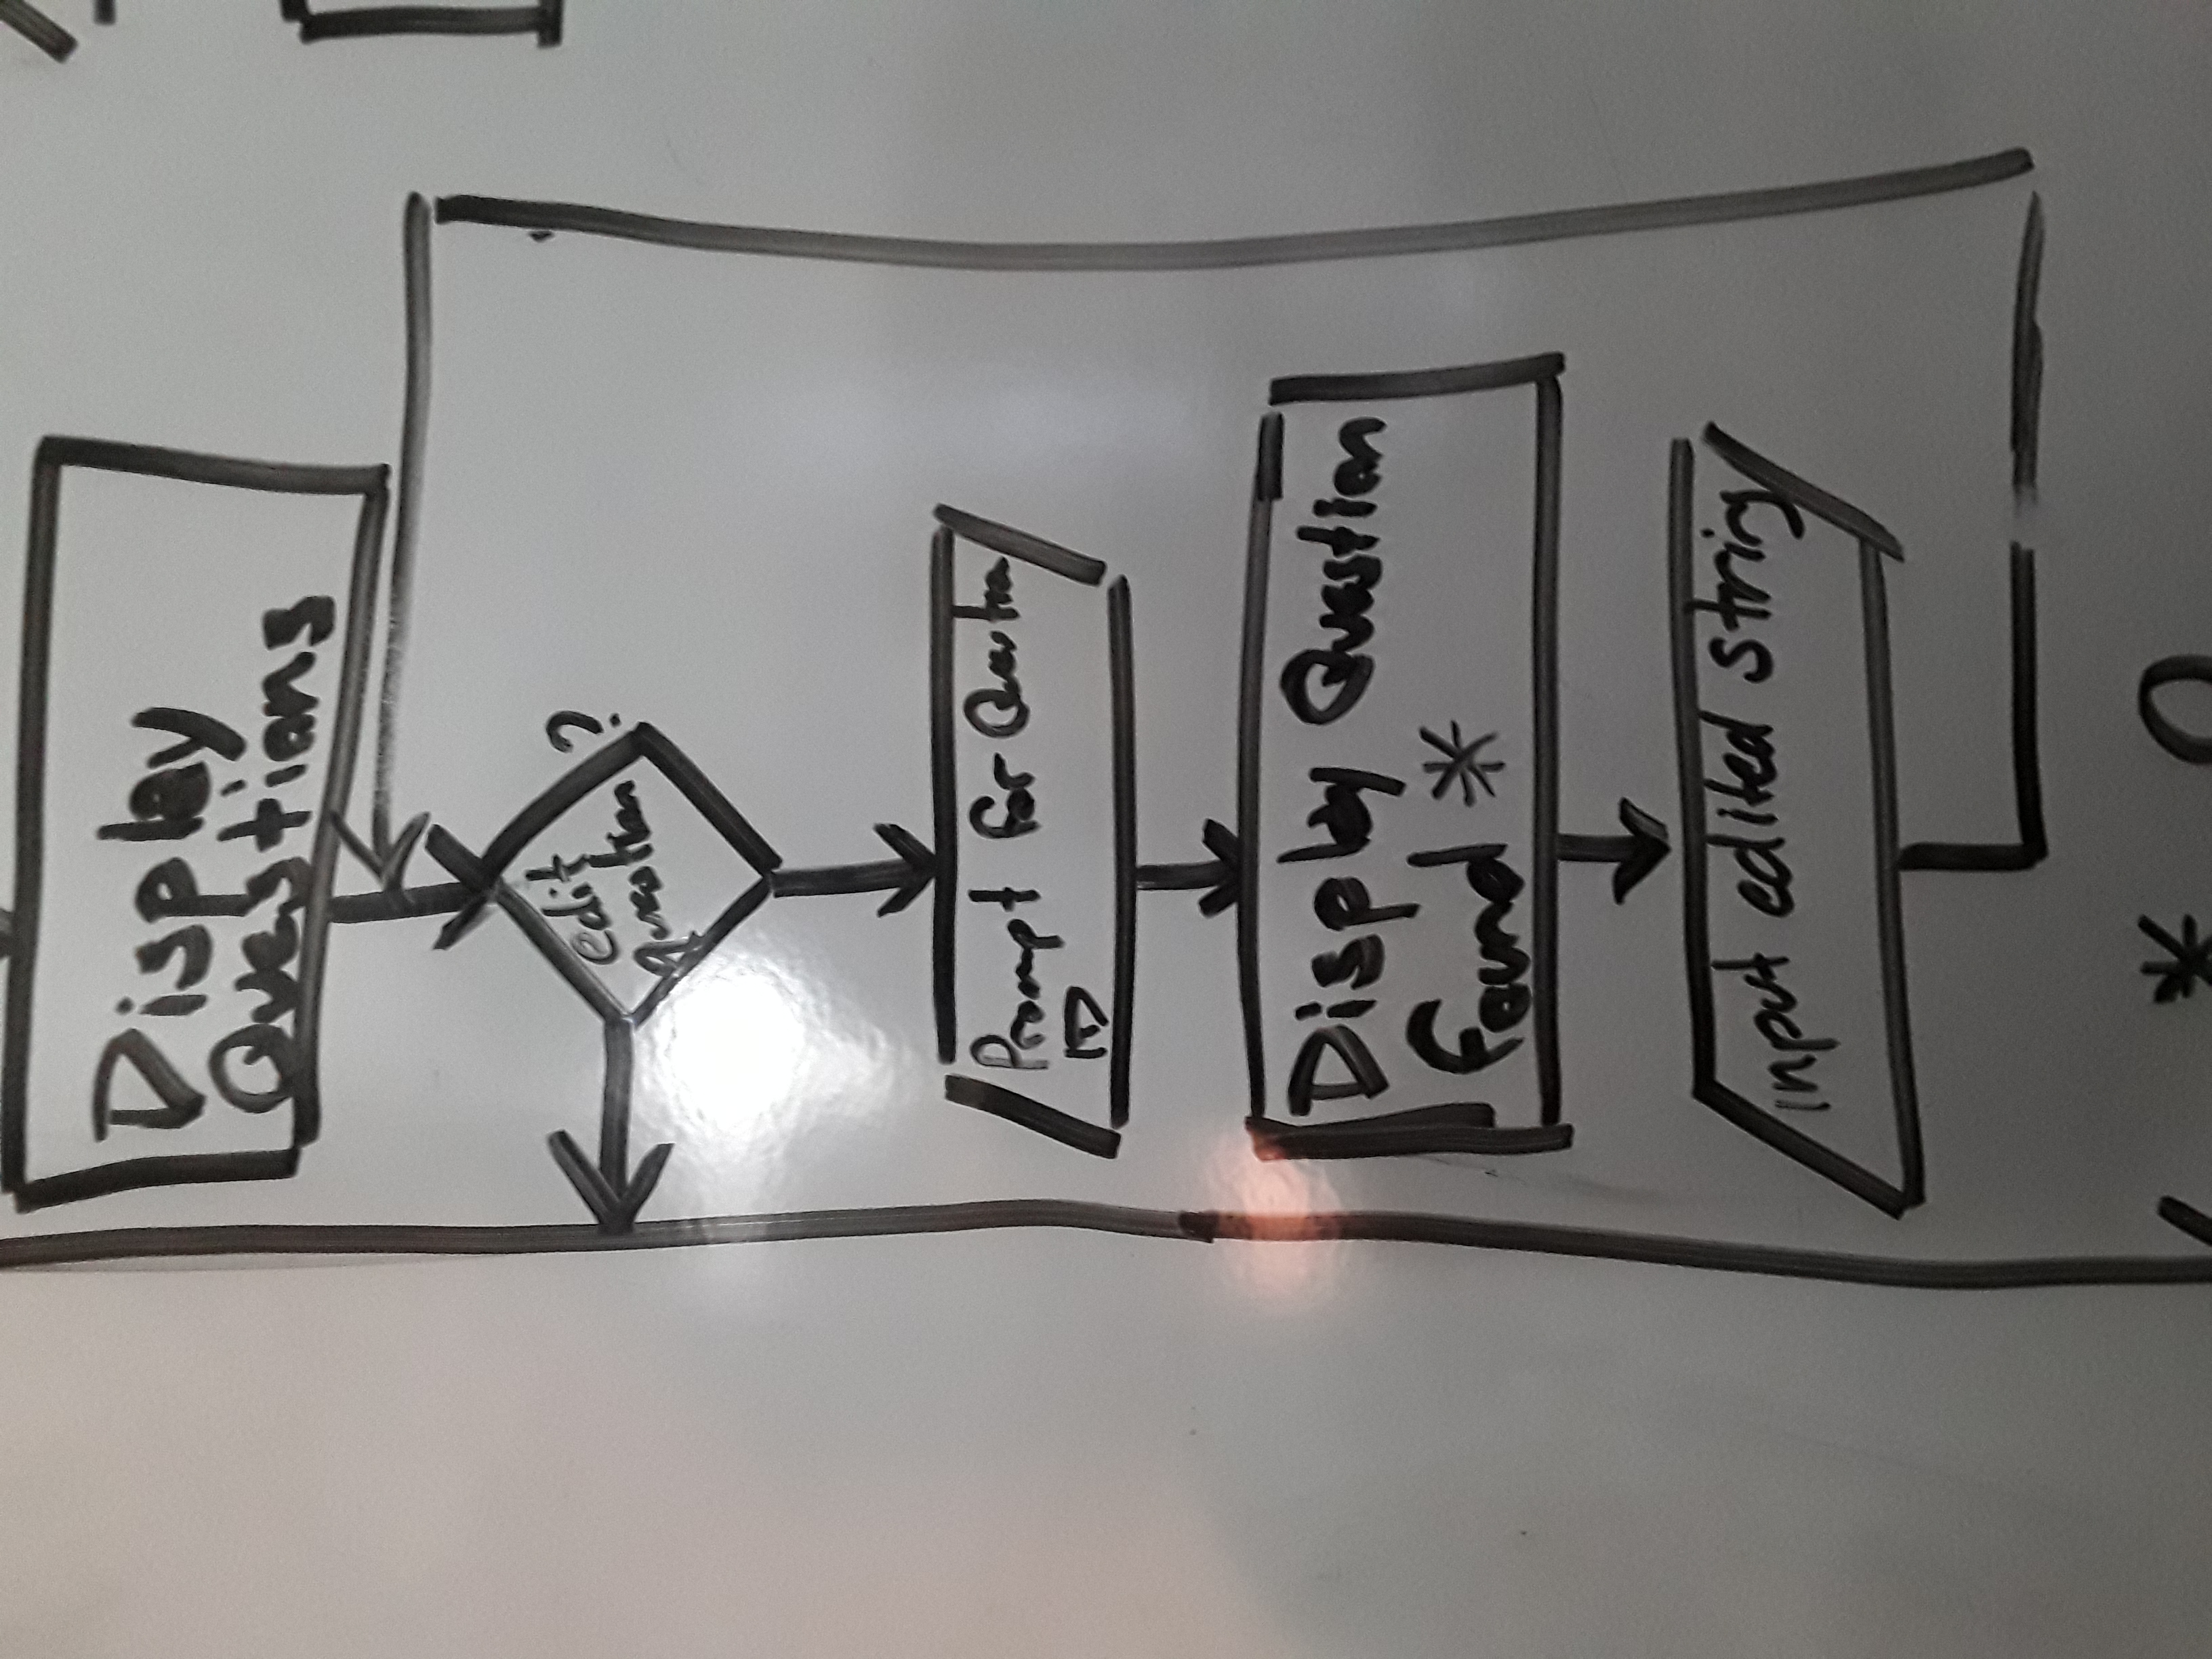 Display
Questions
edit
question
?
Prompt for Question
ID
Display Question
found *
input edited string
*